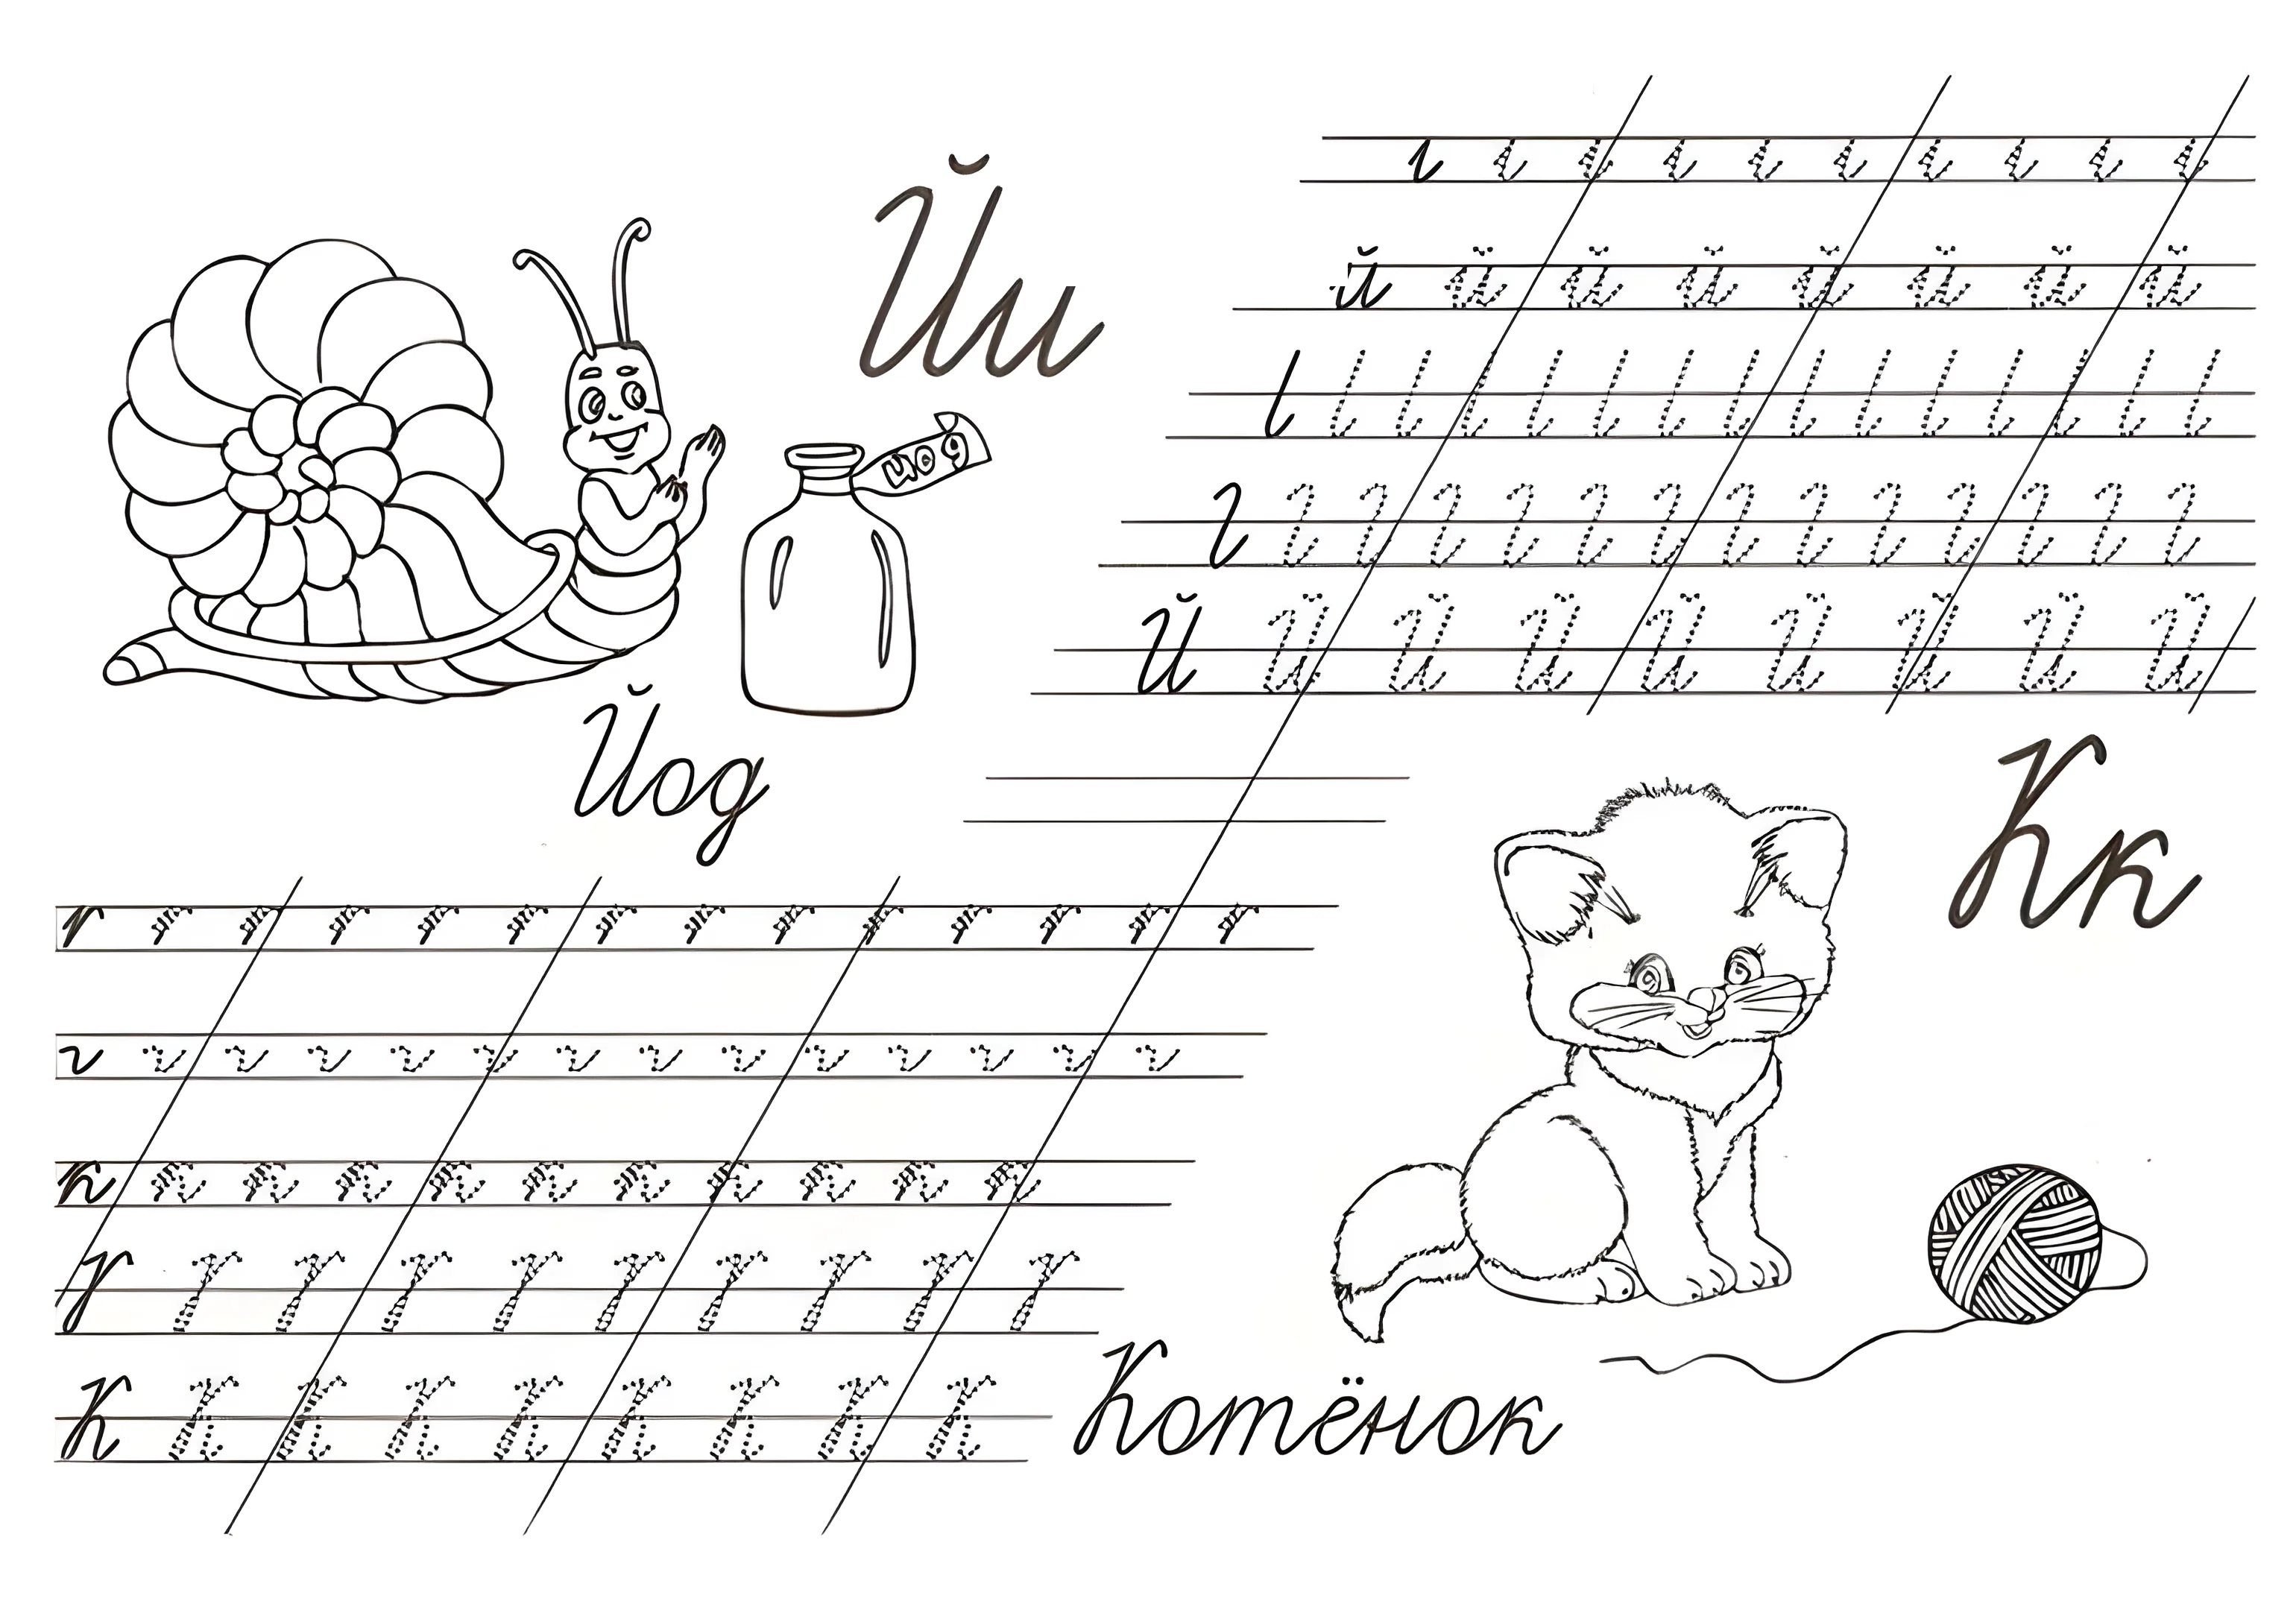 Йи
й й й й й й й й
Й Й Й Й Й Й Й Й Й
йод
Йод
Кк
к к к к к к к к к к к
К К К К К К К К К
Котёнок